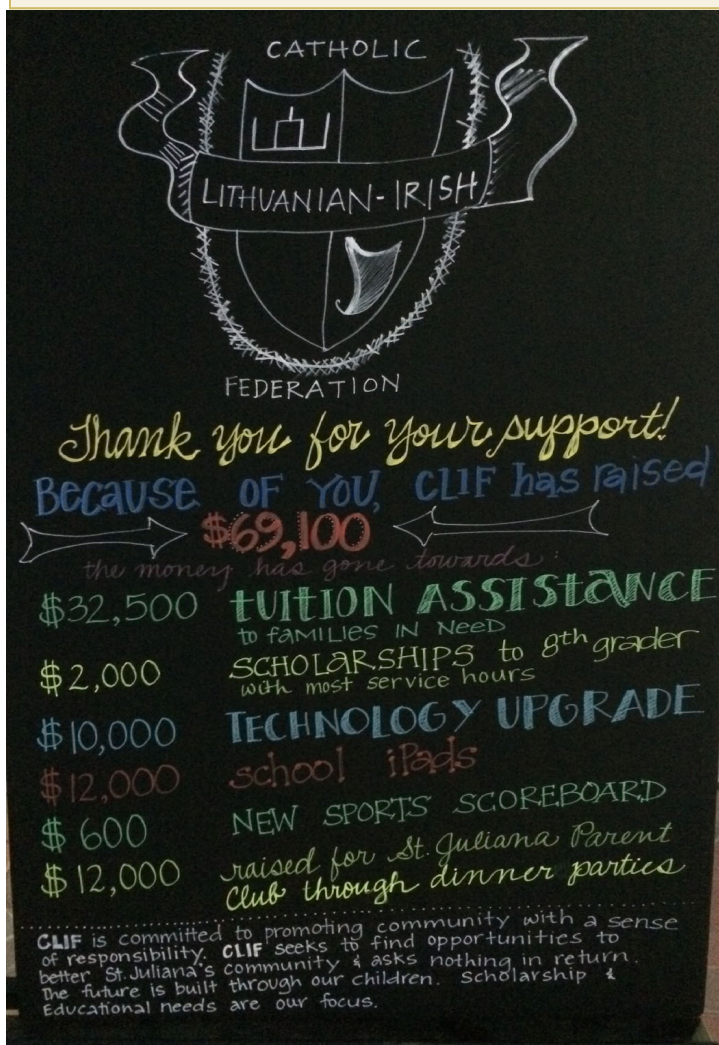 CATHOLIC
LITHUANIAN-IRISH
FEDERATION
Thank you for your support!
BECAUSE OF YOU, CLIF has raised
$69,100
the money has gone towards:
$32,500 TUITION ASSISTANCE
to families IN NEED
$2,000 SCHOLARSHIPS to 8th grader
with most service hours
$10,000 TECHNOLOGY UPGRADE
$12,000 school iPads
$600 NEW SPORTS SCOREBOARD
$12,000 raised for St. Juliana Parent
Club through dinner parties
CLIF is committed to promoting community with a sense
of responsibility. CLIF seeks to find opportunities to
better St. Juliana's community & asks nothing in return.
The future is built through our children. Scholarship &
Educational needs are our focus.